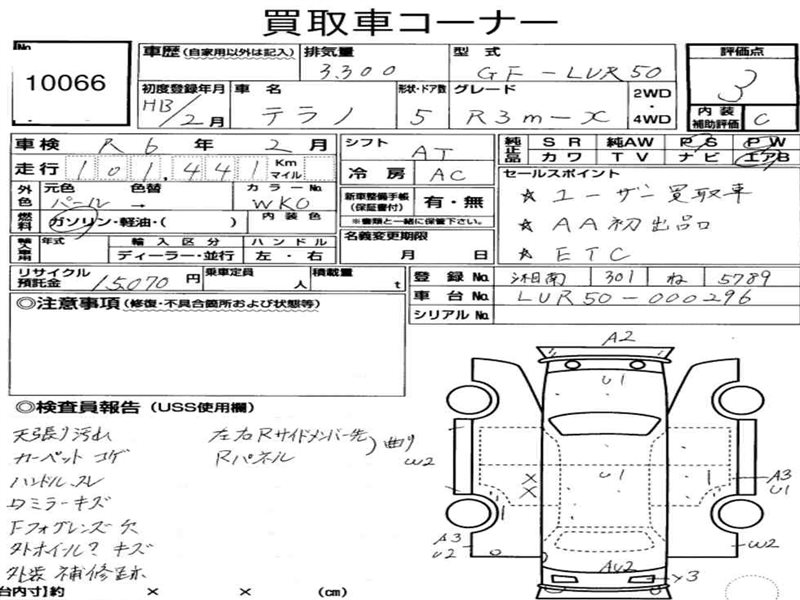 買取車コーナー
No. 10066
車歴 (自家用以外は記入) 排気量 3,300 型式 GF-LUR50 評価点 3
初度登録年月 H13/2月 車名 テラノ 形状・ドア数 5 グレード R3m-X 2WD・4WD 内装補助評価 C
車検 R6年 2月 シフト AT 純正品 SR 純AW PS PW
カワ TV ナビ エアB
走行 101,441 Km マイル 冷房 AC セールスポイント
外色 元色 パール 色替 → カラーNo. WK0 新車整備手帳 (保証書付) 有・無 ☆ユーザー買取車
※書類と一緒に保管下さい。
燃料 ガソリン・軽油・( ) 内装色 名義変更期限 月 日 ☆AA初出品
輸入車用 年式 輸入区分 ディーラー・並行 ハンドル 左・右 ☆ETC
リサイクル預託金 15,070円 乗車定員 人 積載量 t 登録No. 湘南 301 ね 5789
車台No. LUR50-000296
シリアルNo.
◎注意事項 (修復・不具合箇所および状態等)
◎検査員報告 (USS使用欄)
天張り汚れ
カーペットコゲ
ハンドルスレ
ミラーキズ
Fフォグレンズ欠
キズ
外装補修跡
左右Rサイドメンバー先
Rパネル
曲り
A2
U1
W2
U1
A3
U1
A3
U2
W2
AU2
Y3
台内寸)約 × × (cm)